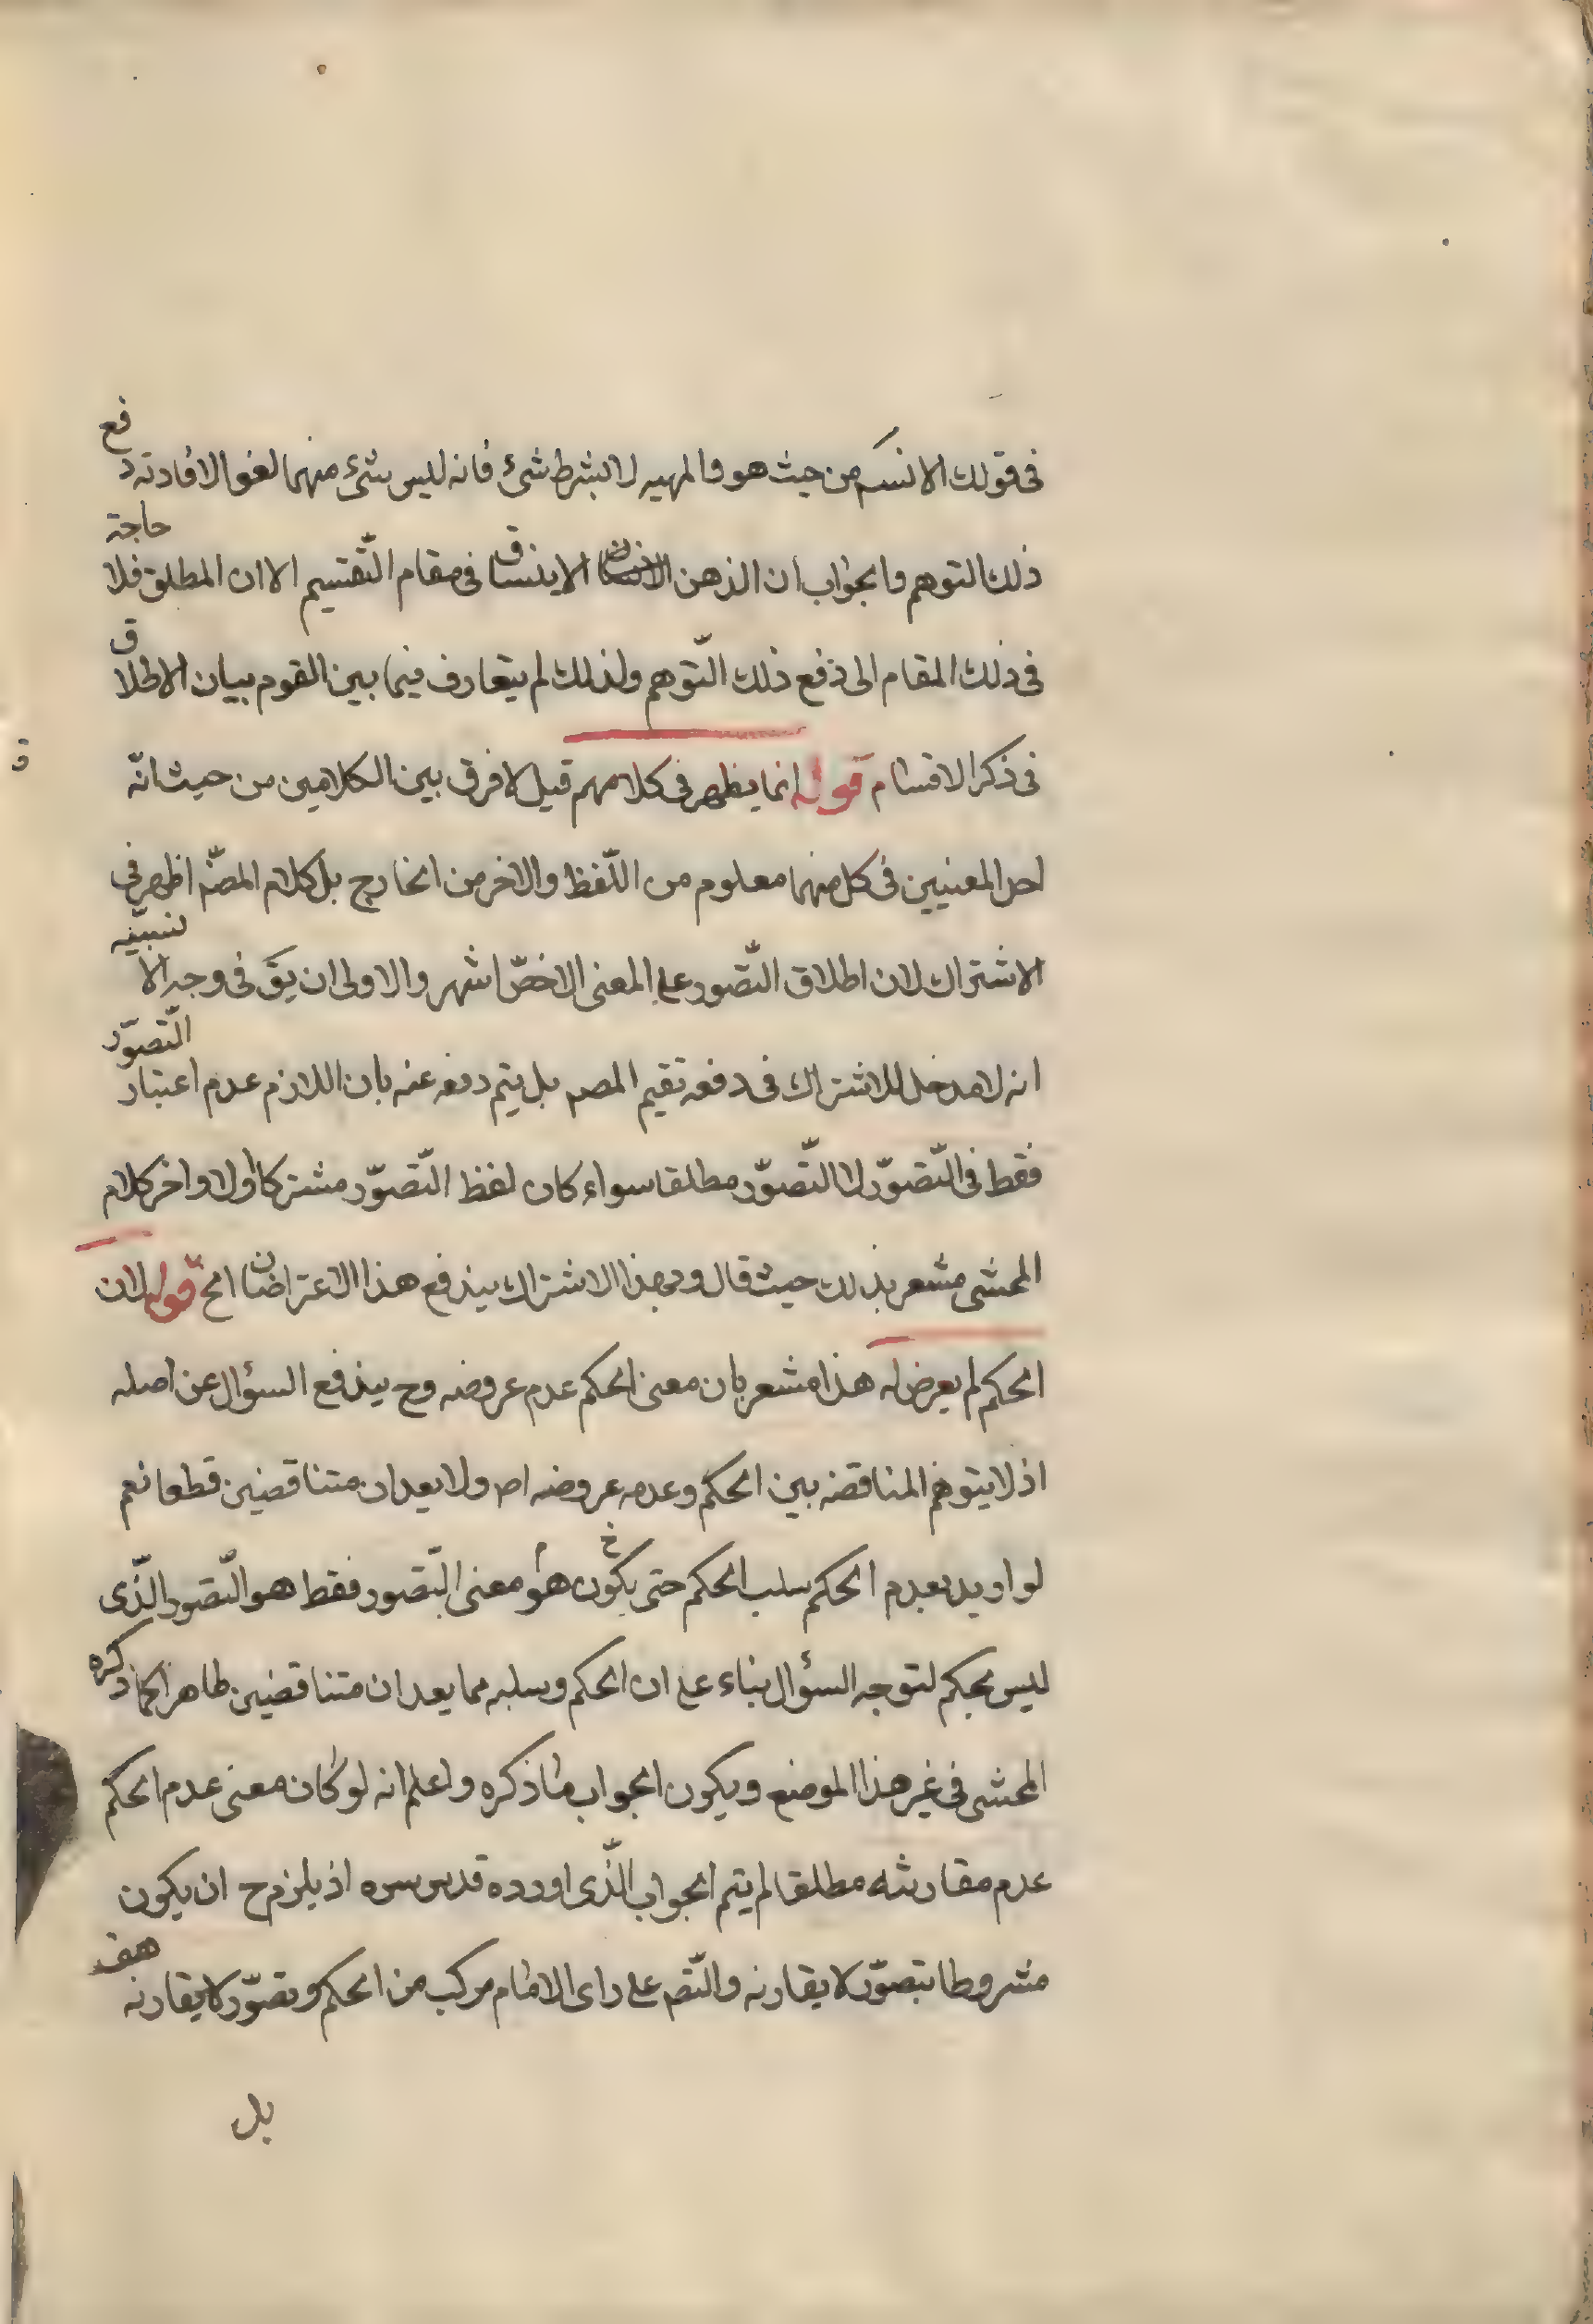 فى قولك الانسان من حيث هو والمهيه لا بشرط شئ فانه ليس بشئ منهما لغوا لافادته دفع
ذلك التوهم والجواب ان الذهن لا ينساق فى مقام التّقسيم الا ان المطلق فلا حاجة
فى ذلك المقام الى دفع ذلك التّوهم ولذلك لم يتعارف فيما بين القوم بيان الاطلاق
فى ذكر الاقسام قوله انما يظهر فى كلامهم قيل لا فرق بين الكلامين من حيث انّه
احد المعنيين فى كل منهما معلوم من اللّفظ والاخر من الخارج بل كلام المصنّ اظهر فى
الاشتراك لان اطلاق التّصور على المعنى الاخصّ اشهر والاولى ان يقَ فى وجه الا لتنبيه
انه لا مدخل للاشتراك فى دفعه تقيم المصم بل يتم دفعه عنه بان اللازم عدم اعتبار التّصوّر
فقط فى التّصوّر لا التّصوّر مطلقا سواء كان لفظ التّصوّر مشتركا اولا واخر كلام
المحشى مشعر بذلك حيث قال وبهذا الاشتراك يندفع هذا الاعتراضان الخ قوله لان
الحكم لم يعرض له هذا مشعر بان معنى الحكم عدم عروضه وح يندفع السؤال عن اصله
اذ لا يتوهم المناقضه بين الحكم وعدم عروضه اص ولا يعدان متناقضين قطعا نعم
لو اريد بعدم الحكم سلب الحكم حتى يكون هو معنى التّصور فقط هو التّصور الذّى
ليس بحكم لتوجه السؤال بناء على ان الحكم وسلبه مما يعدان متناقضين ظاهرا كما ذكره
المحشى فى غير هذا الموضع ويكون الجواب ما ذكره واعلم انه لو كان معنى عدم الحكم
عدم مقارنته مطلقا لم يتم الجواب الذّى اورده قدس سره اذ يلزم ح ان يكون
مشروطا بتصوّر لا يقارنه والتّصم على راى الامام مركب من الحكم وتصوّر لا يقارنه هف
بل